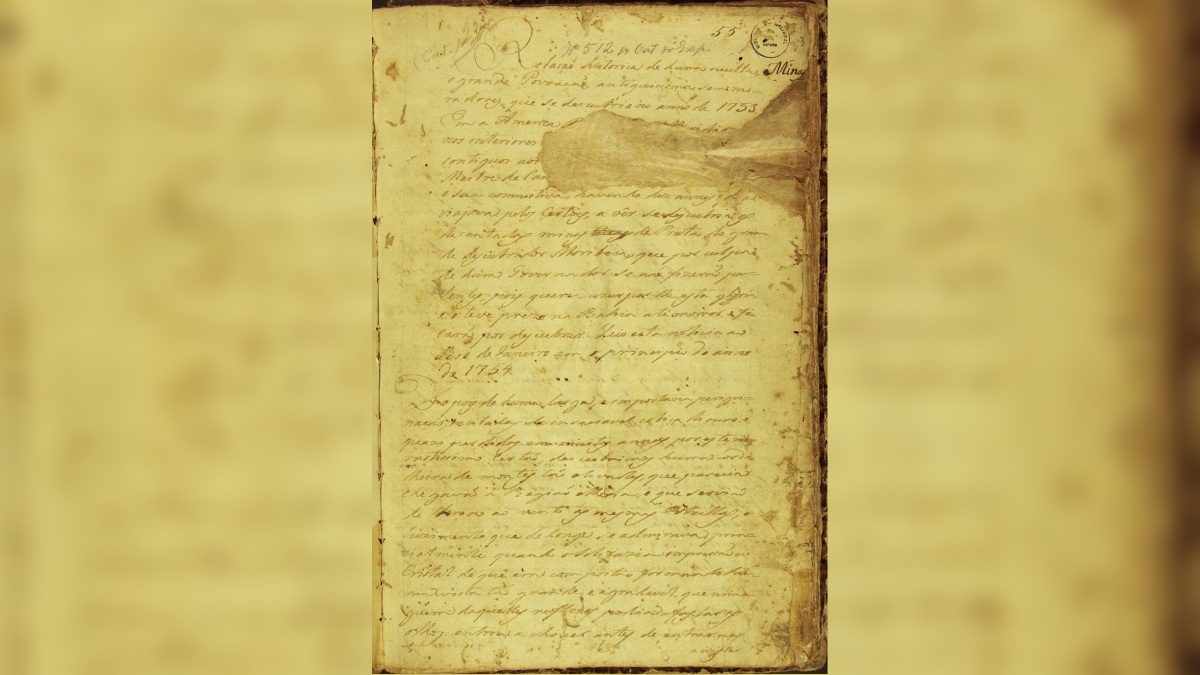 55
Nº 512
Relação historica de huma occulta,
e grande Povoação, antiquissima sem mo-
radores, que se descubrio no anno de 1753.
Em a America
nos interiores
contiguos aos
Mestre de Can
e sua comitiva, havendo dez annos, que
viajava pelos Certões, a vêr se descubria
decantadas minas de Prata do gran-
de descubridor Moribeca, que por culpa
de hum Governador se não fizerão pa-
tentes, pois queria usurpar lhe esta gloria
e o teve prezo na Bahia até morrer, e fi-
carão por descubrir. Veio esta noticia ao
Rio de Janeiro em o principio do anno
de 1754.
Depois de huma larga, e importuna perigri-
nação, incitados da insaciavel cobiça do ouro e
quazi perdidos em muitos annos por este
vastissimo Certão, descubrimos huma cordi
lheira de montes tão elevados, que parecia
chegavão á Região etherea, e que servião
de throno ao vento, ás mesmas Estrellas; o
luzimento que de longe se admirava prin-
cipalmente quando o Sol fazia impressão no
Cristal de que era composta formando hu-
ma vista tão grande, e agradavel, que nin-
guem daquelles reflexos podia afastar os
olhos: entrou a chover antes de entrarmos